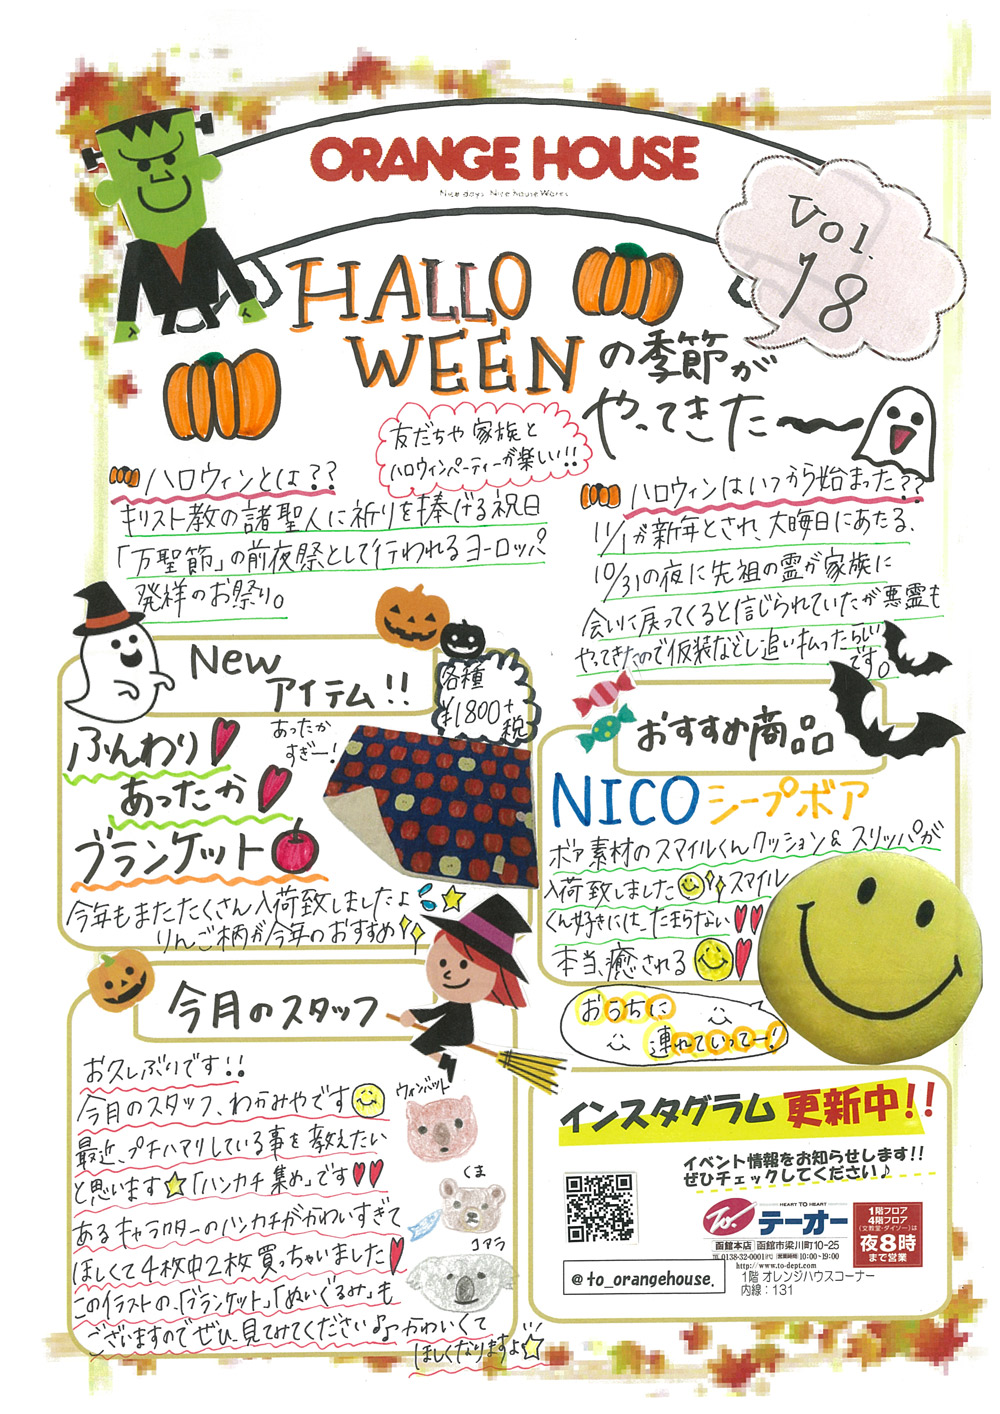 ORANGE HOUSE
Nice days. Nice house Works
Vol.
18
HALLO
WEEN の季節が
やってきた〜
友だちや家族と
ハロウィンパーティーが楽しい!!
ハロウィンとは??
キリスト教の諸聖人に祈りを捧げる祝日
「万聖節」の前夜祭として行われるヨーロッパ
発祥のお祭り。
ハロウィンはいつから始まった??
11/1が新年とされ、大晦日にあたる、
10/31の夜に先祖の霊が家族に
会いに戻ってくると信じられていたが悪霊も
やってきたので仮装などし追い払ったらしい
です。
New
アイテム!!
各種
¥1800+
税
ふんわり
あったか
ブランケット
あったか
すぎー!
今年もまたたくさん入荷致しましたよ
りんご柄が今年のおすすめ
おすすめ商品
NICO シープボア
ボア素材のスマイルくんクッション&スリッパが
入荷致しました スマイル
くん好きには、たまらない
本当、癒される
おうちに
連れていってー!
今月のスタッフ
お久しぶりです!!
今月のスタッフ、わかみやです
最近、プチハマリしている事を教えたい
と思います☆「ハンカチ集め」です
あるキャラクターのハンカチがかわいすぎて
ほしくて4枚中2枚買っちゃいました
このイラストの、「ブランケット」「ぬいぐるみ」も
ございますのでぜひ、見てみてください♪かわいくて
ほしくなりますよ☆
ウォンバット
くま
コアラ
インスタグラム 更新中!!
イベント情報をお知らせします!!
ぜひチェックしてください♪
@to_orangehouse.
HEART TO HEART
To. テーオー
函館本店 函館市梁川町10-25
TEL 0138-32-0001(代) 営業時間 10:00~19:00
http://www.to-dept.com
1階 オレンジハウスコーナー
内線:131
1階フロア
4階フロア
(文教堂・ダイソー)は
夜8時
まで営業